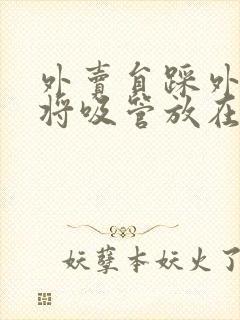 外賣員踩外
将吸管放在
妖孽本妖火了